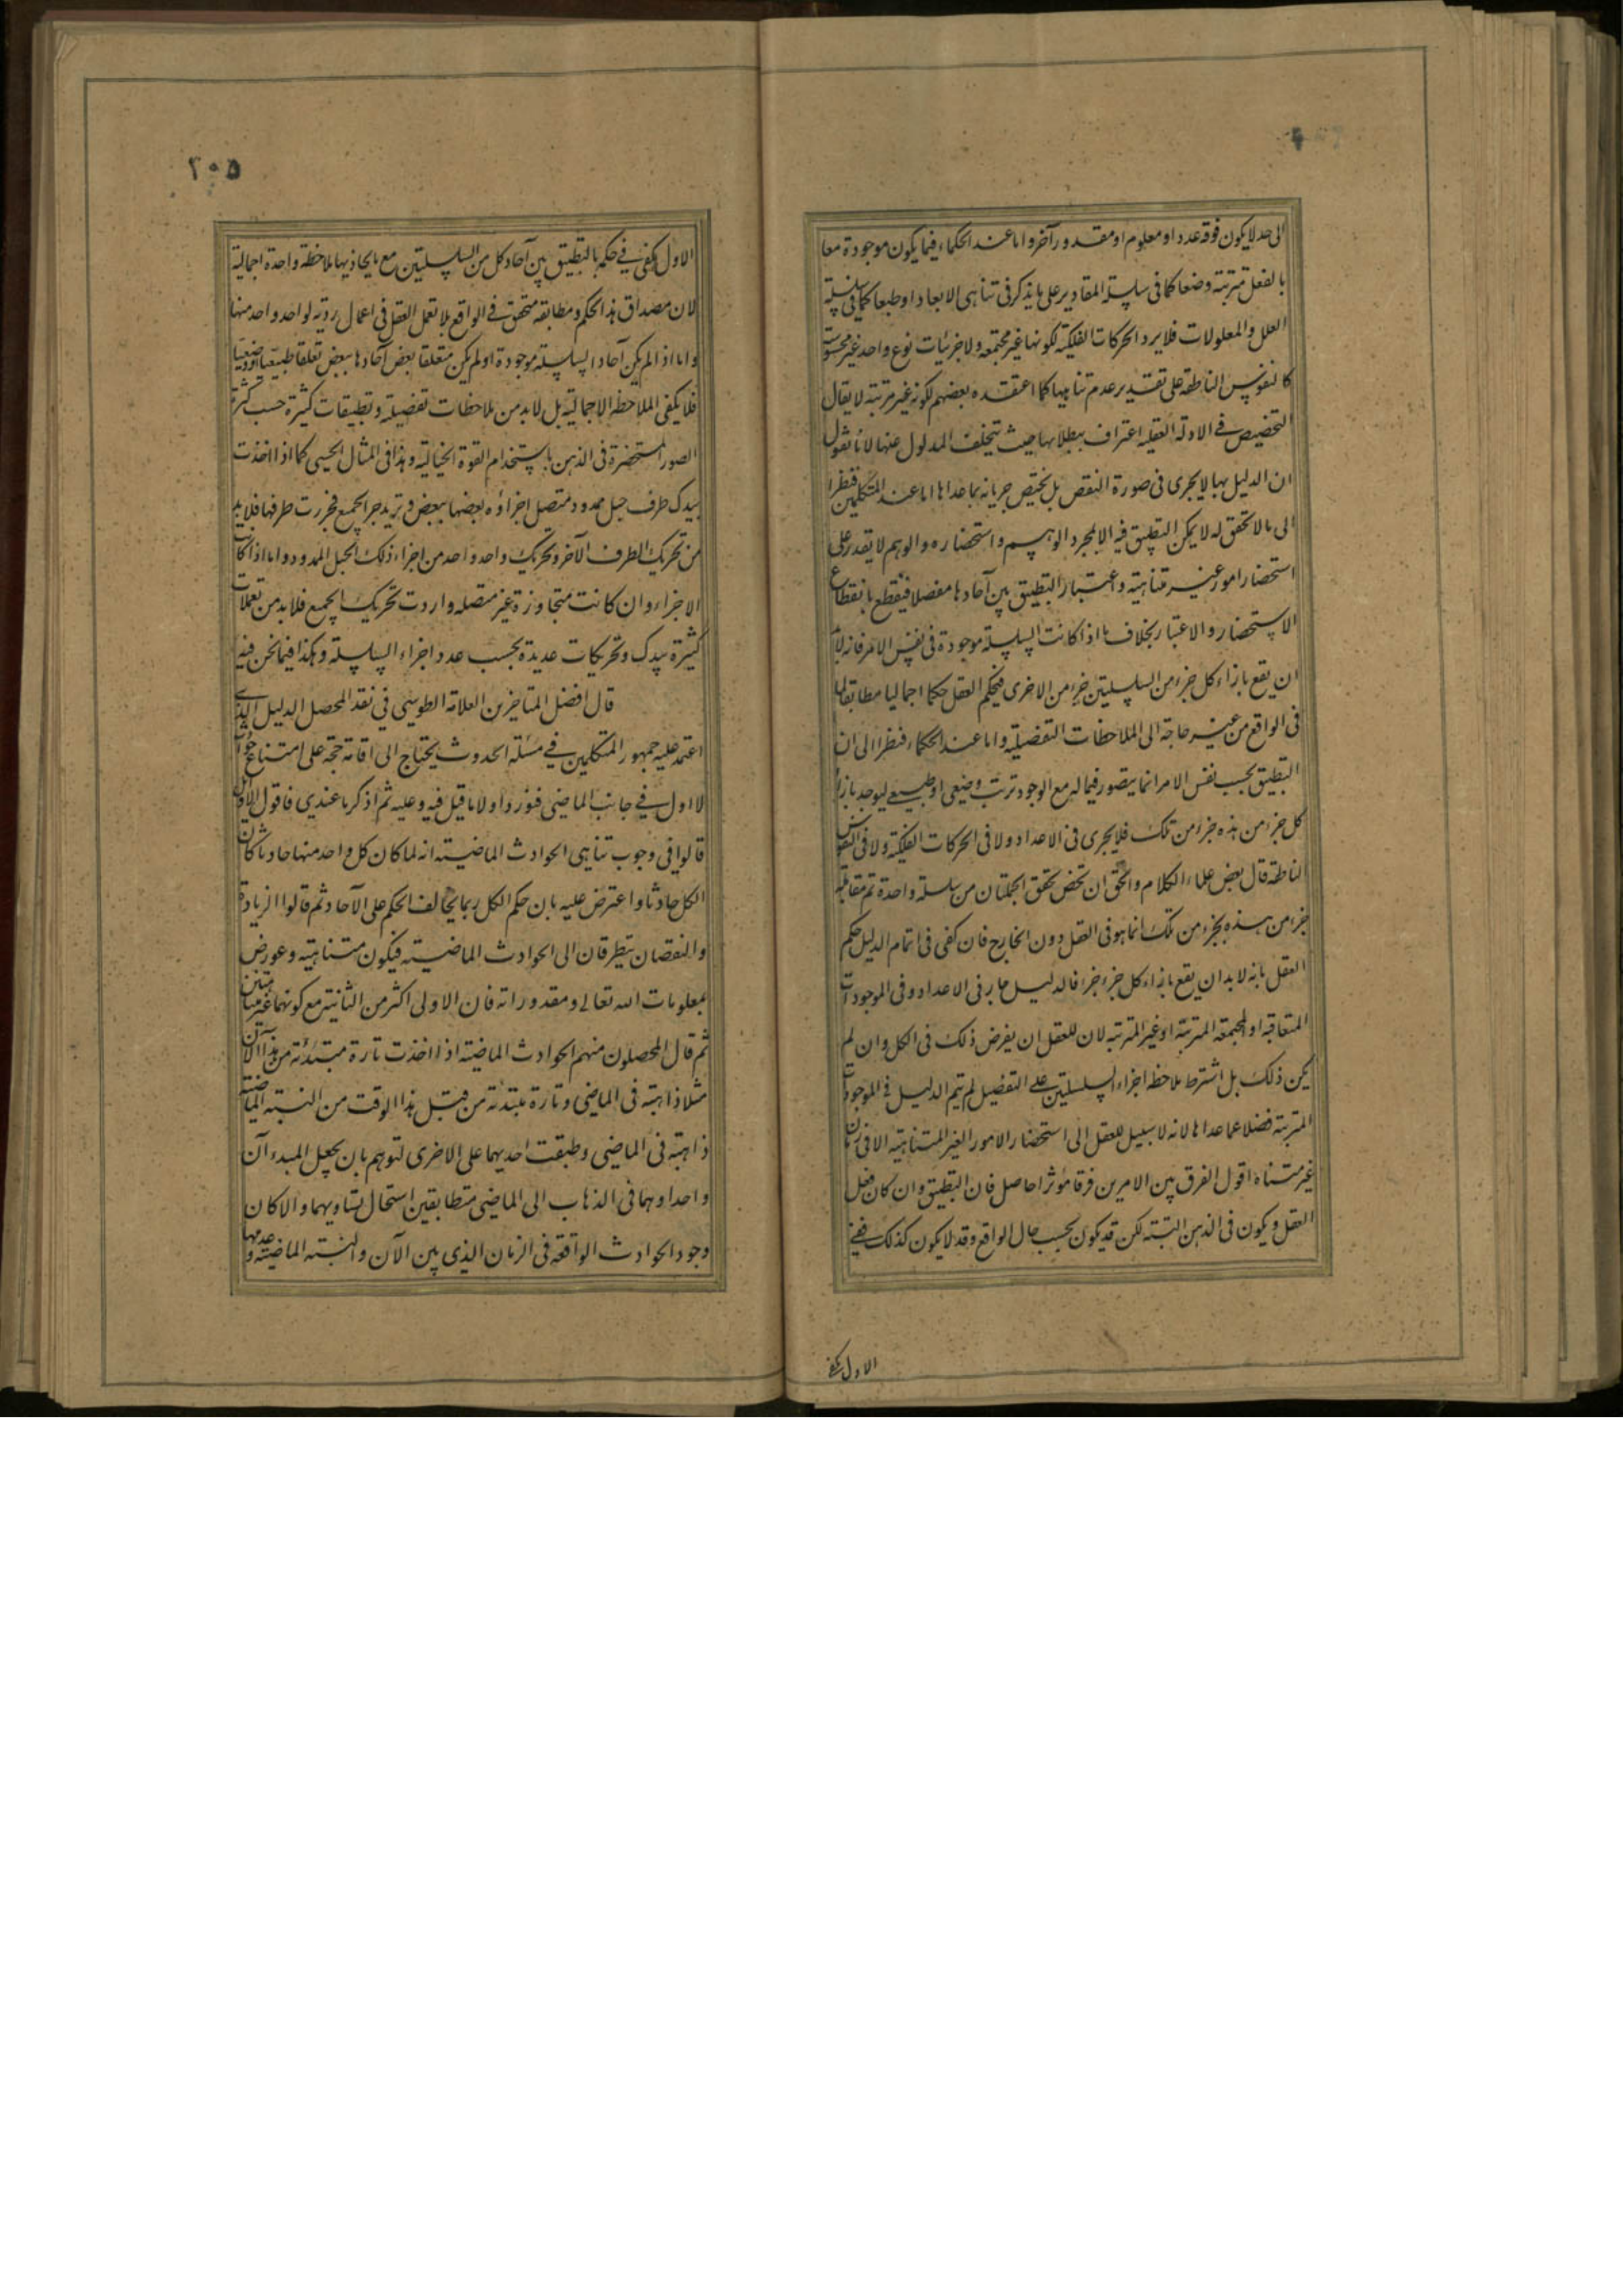 الى حد لا يكون فوقه عدد او معلوم او مقدور آخر واما عند الحكماء فيما يكون موجودة معا
بالفعل مترتبة وضعا كما فى سلسلة المقادير على ما يذكر فى تناهى الابعاد او طبعا كما فى سلسلة
العلل والمعلولات فلا يرد الحركات الفلكية لكونها غير مجتمعه ولا جزئيات نوع واحد غير محسوسة
كالنفوس الناطقة على تقدير عدم تناهيها كما اعتقده بعضهم لكونه غير مرتبة لا يقال
التخصيص فى الادلة العقليه اعتراف ببطلانها حيث يتخلف المدلول عنها لانا نقول
ان الدليل بها لا يجرى فى صورة النقص بل يختص جريانه بما عداها اما عند المتكلمين فنظرا
الى ما لا تحقق له لا يمكن التطبيق فيه الا بمجرد الوهم واستحضاره والوهم لا يقدر على
استحضار امور غير متناهية واعتبار التطبيق بين آحادها مفصلا فينقطع بانقطاع
الاستحضار والاعتبار بخلاف ما اذا كانت السلسلة موجودة فى نفس الامر فانه لابد
ان يقع بازاء كل جزء من السلسلتين جزء من الاخرى فيحكم العقل حكما اجماليا مطابقا لما
فى الواقع من غير حاجة الى الملاحظات التفصيلية واما عند الحكماء فنظرا الى ان
التطبيق بحسب نفس الامر انما يتصور فيما له مع الوجود ترتب وضعى او طبيعى ليوجد بازاء
كل جزء من هذه جزء من تلك فلا يجرى فى الاعداد ولا فى الحركات الفلكية ولا فى النفوس
الناطقة قال بعض علماء الكلام والحق ان تحقق الجملتان من سلسلة واحدة ثم مقابلة
جزء من هذه بجزء من تلك انما هو فى العقل دون الخارج فان كفى فى اتمام الدليل حكم
العقل بانه لا بد ان يقع بازاء كل جزء جزء فالدليل جار فى الاعداد وفى الموجودات
المتعاقبة او المجتمعة المترتبة او غير المترتبة لان للعقل ان يفرض ذلك فى الكل وان لم
يكن ذلك بل اشترط ملاحظة اجزاء السلسلتين على التفصيل لم يتم الدليل فى الموجودات
المترتبة فضلا عما عداها لانه لا سبيل للعقل الى استحضار الامور الغير المتناهية الا فى زمان
غير متناه اقول الفرق بين الامرين فرقا مؤثرا حاصل فان التطبيق وان كان فعل
العقل ويكون فى الذهن البتة لكن قد يكون بحسب حال الواقع وقد لا يكون كذلك ففى
الاول يكفى
٢٠٥
الاول يكفى فى حكمه بالتطبيق بين آحاد كل من السلسلتين مع ما يحاذيها ملاحظة واحدة اجمالية
لان مصداق هذا الحكم ومطابقه متحقق فى الواقع بلا تعمل العقل فى اعمال روية لواحد واحد منها
واما اذا لم يكن آحاد السلسلة موجودة او لم يكن متعلقا بعض آحادها ببعض تعلقا طبيعيا او وضعيا
فلا يكفى الملاحظة الاجمالية بل لا بد من ملاحظات تفصيلية وتطبيقات كثيرة حسب كثرة
الصور المستحضرة فى الذهن باستخدام القوة الخيالية وهذا فى المثال الحسى كما اذا اخذت
بيدك طرف حبل ممدود متصل اجزاؤه بعضها ببعض وتريد جر الجميع فجررت طرفها فلا بد
من تحريك الطرف الآخر وتحريك واحد واحد من اجزاء ذلك الحبل الممدود واما اذا كانت
الاجزاء وان كانت متجاورة غير متصله واردت تحريك الجميع فلا بد من تعملات
كثيرة بيدك وتحريكات عديدة بحسب عدد اجزاء السلسلة وهكذا فيما نحن فيه
قال افضل المتاخرين العلامة الطوسى فى نقد المحصل الدليل الذى
اعتمد عليه جمهور المتكلمين فى مسئلة الحدوث يحتاج الى اقامة حجة على امتناع حوادث
لا اول فى جانب الماضى فنورد اولا ما قيل فيه وعليه ثم اذكر ما عندى فاقول الاوائل
قالوا فى وجوب تناهى الحوادث الماضية انه لما كان كل واحد منها حادثا كان
الكل حادثا واعترض عليه بان حكم الكل ربما يخالف الحكم على الآحاد ثم قالوا الزيادة
والنقصان يتطرقان الى الحوادث الماضية فيكون متناهية وعورض
بمعلومات الله تعالى ومقدوراته فان الاولى اكثر من الثانية مع كونهما غير متناهيتين
ثم قال المحصلون منهم الحوادث الماضية اذا اخذت تارة مبتدئة من هذا الآن
مثلا ذاهبة فى الماضى وتارة مبتدئة من قبل هذا الوقت من السنة الماضية
ذاهبة فى الماضى وطبقت احديهما على الاخرى لتوهم بان يجعل المبدء آن
واحدا وهما فى الذهاب الى الماضى متطابقين استحال تساويهما والا كان
وجود الحوادث الواقعة فى الزمان الذى بين الآن والسنة الماضية وعدمها